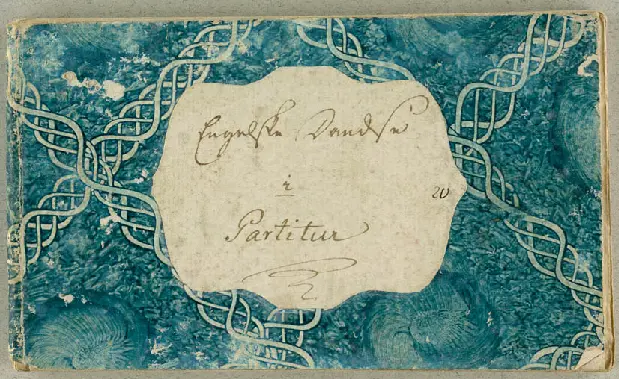 Engelske Dandse
i
20
Partitur